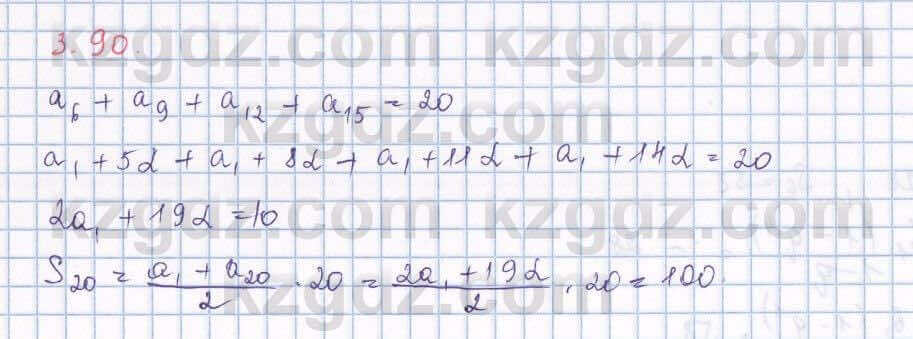 3.90.
a₆ + a₉ + a₁₂ + a₁₅ = 20
a₁ + 5d + a₁ + 8d + a₁ + 11d + a₁ + 14d = 20
2a₁ + 19d = 10
S₂₀ = (a₁ + a₂₀)/2 · 20 = (2a₁ + 19d)/2 · 20 = 100.
kzgdz.com kzgdz.com
kzgdz.com
kzgdz.com kzgdz.com
kzgdz.com